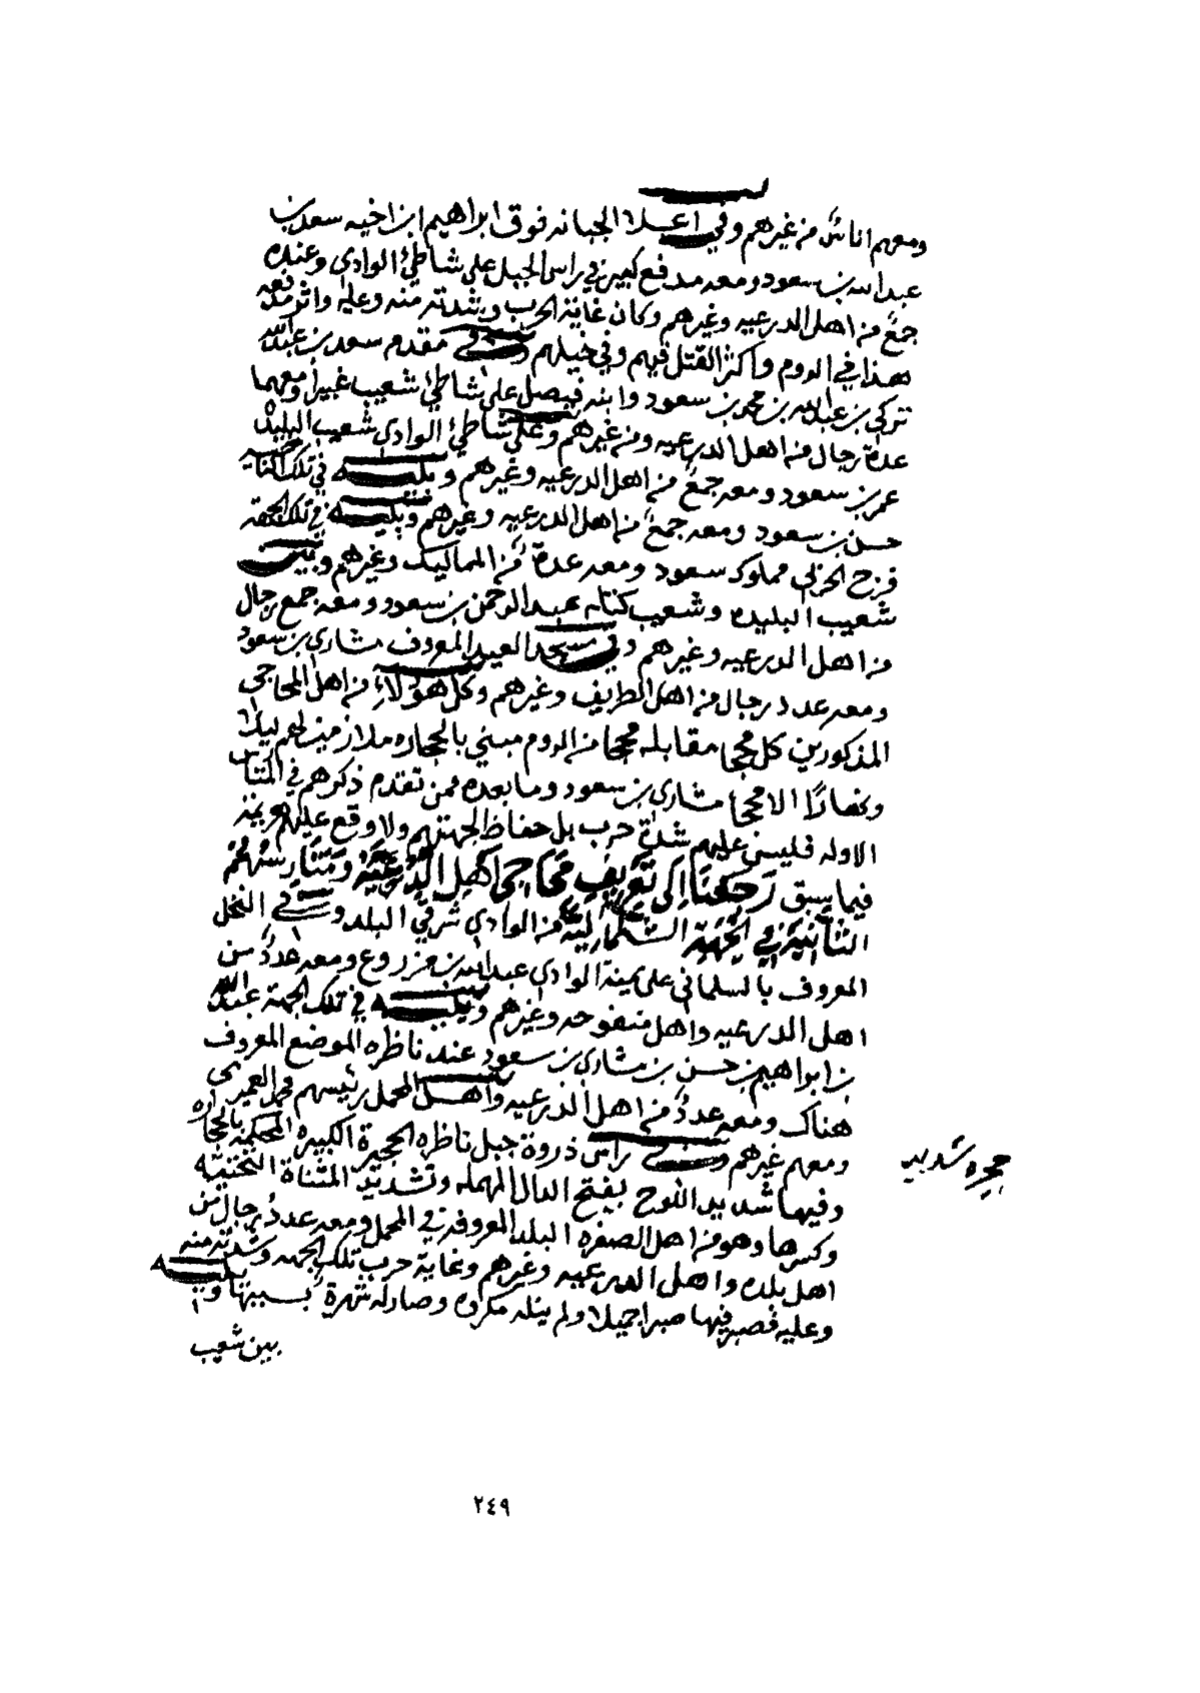 ومعهم اناسٌ من غيرهم وفي اعلا الجبانه فوق ابراهيم ابن اخيه سعد بن
عبدالله بن سعود ومعه مدفع كبير في راس الجبل على شاطئ الوادي وعنده
جمعٌ من اهل الدرعيه وغيرهم وكان غاية الحرب وشدته منه وعليه واثر مدفعه
هذا في الروم واكثر القتل فيهم وفي خيلهم وفي مقدم سعد بن عبدالله
تركي بن عبدالله بن محمد بن سعود وابنه فيصل على شاطئ شعيب غبيرا ومعهما
عدة رجال من اهل الدرعيه ومن غيرهم وعلى شاطئ الوادي شعيب البليده
عمر بن سعود ومعه جمعٌ من اهل الدرعيه وغيرهم ويليه في تلك الناحيه
حسن بن سعود ومعه جمعٌ من اهل الدرعيه وغيرهم ويليه في تلك الجهة
فرج الحربي مملوك سعود ومعه عدة من المماليك وغيرهم وبين
شعيب البليده وشعيب كتله عبدالرحمن بن سعود ومعه جمع رجال
من اهل الدرعيه وغيرهم وفي مسجد العيد المعروف مشاري بن سعود
ومعه عدد رجال من اهل الطريف وغيرهم وكل هؤلاءِ من اهل المحاجي
المذكورين كل محجا مقابله محجا من الروم مبني بالحجاره ملازمين لهم ليلا
ونهارًا الا محجا مشاري بن سعود وما بعده ممن تقدم ذكرهم في المتارس
الاوله فليس عليهم شدة حرب بل حفاظ لجهتهم ولا وقع عليهم هزيمة
فيما سبق رَجَعْنَا اِلى تَعْرِيفِ مَحَاجِي اَهْلِ الدَّرْعِيَّةِ وَمَتَارِسِهُمْ
الثَّانِيَةِ فِي الْجِهَةِ الشَّمَالِيَّة من الوادي شرقي البلد وفي النخل
المعروف بالسلماني على يمنة الوادي عبدالله بن مزروع ومعه عددٌ من
اهل الدرعيه واهل منفوحه وغيرهم ويليه في تلك الجهة عبدالله
بن ابراهيم بن حسن بن مشاري بن سعود عند ناظره الموضع المعروف
هناك ومعه عددٌ من اهل الدرعيه واهل المحمل رئيسهم محمد العميري
ومعهم غيرهم وفي راس ذروة جبل ناظره الحجيرة الكبيره المحكمة بالحجاره
وفيها شديد اللوح بفتح الدال المهمله وتشديد المثناة التحتيه
وكسرها وهو من اهل الصفره البلد المعروفه في المحمل ومعه عددُ رجال من
اهل بلده واهل الدرعيه وغيرهم وغاية حرب تلك الجهه وشدته منه
وعليه فصبر فيها صبرا جميلا ولم ينله مكروه وصار له شهرة بسببها ويليه
بين شعيب
حجره شديد
٢٤٩